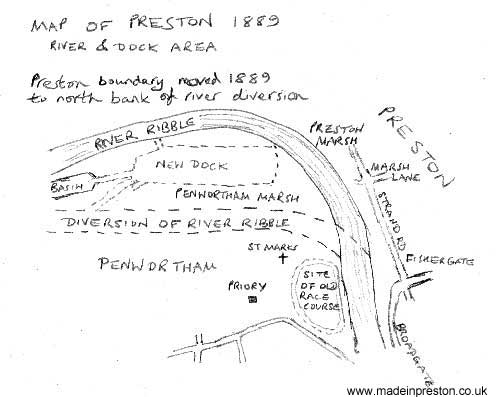 MAP OF PRESTON 1889
RIVER & DOCK AREA
Preston boundary moved 1889
to north bank of river diversion
RIVER RIBBLE
PRESTON
MARSH
PRESTON
NEW DOCK
MARSH
LANE
BASIN
PENWORTHAM MARSH
STRAND RD
DIVERSION OF RIVER RIBBLE
ST MARKS
FISHERGATE
PENWORTHAM
SITE
OF OLD
RACE
COURSE
PRIORY
BROADGATE
www.madeinpreston.co.uk